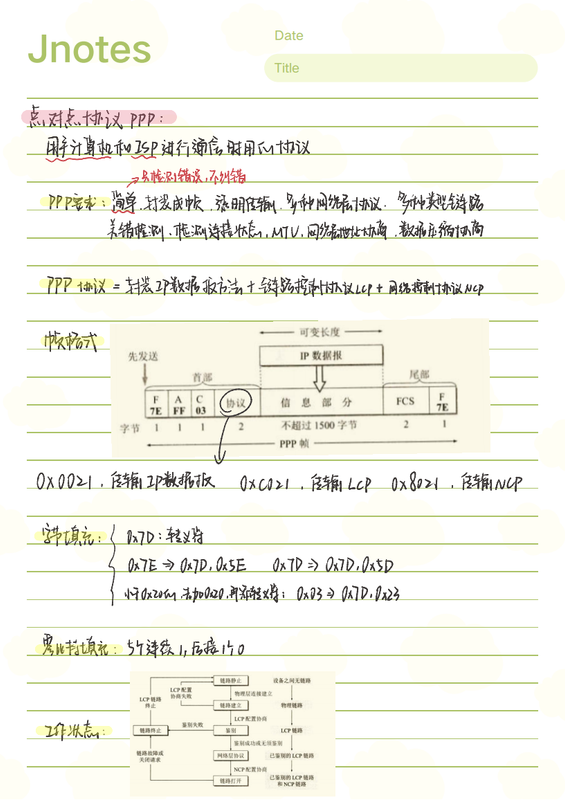 Jnotes
Date
Title
点对点协议 PPP：
用于计算机和ISP进行通信时用的协议
→只检测错误，不纠错
PPP要求：简单、封装成帧、透明传输、多种网络层协议、多种类型链路
差错检测、检测连接状态、MTU、网络层地址协商、数据压缩协商
PPP 协议 = 封装IP数据报方法 + 链路控制协议LCP + 网络控制协议NCP
帧格式
可变长度
先发送
IP 数据报
首部
尾部
F A C 协议 信息部分 FCS F
7E FF 03 7E
字节 1 1 1 2 不超过 1500 字节 2 1
PPP 帧
0x0021，传输IP数据报 0xC021，传输LCP 0x8021，传输NCP
字节填充：
0x7D：转义符
0x7E ⇒ 0x7D, 0x5E 0x7D ⇒ 0x7D, 0x5D
小于0x20的，先加0x20，再添转义符；0x03 ⇒ 0x7D, 0x23
零比特填充：5个连续1，后接1个0
工作状态：
链路静止 设备之间无链路
LCP 链路终止
LCP 配置协商失败
物理层连接建立
链路建立 物理链路
LCP 配置协商
链路终止 鉴别失败 鉴别 LCP 链路
鉴别成功或无须鉴别
链路故障或关闭请求
网络层协议 已鉴别的 LCP 链路
NCP 配置协商
链路打开 已鉴别的 LCP 链路和 NCP 链路